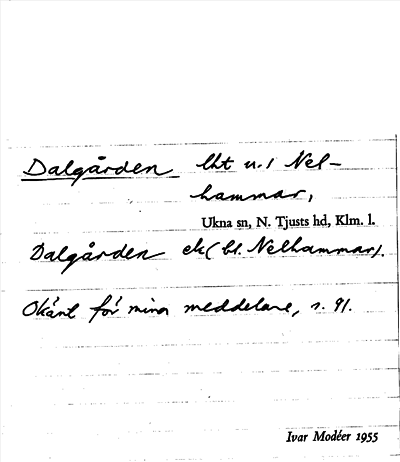 Dalgården lht u./ Nel-
hammar,
Ukna sn, N. Tjusts hd, Klm. l.
Dalgården ek (bl. Nelhammar).
Okänt för mina meddelare, s. 91.
Ivar Modéer 1955